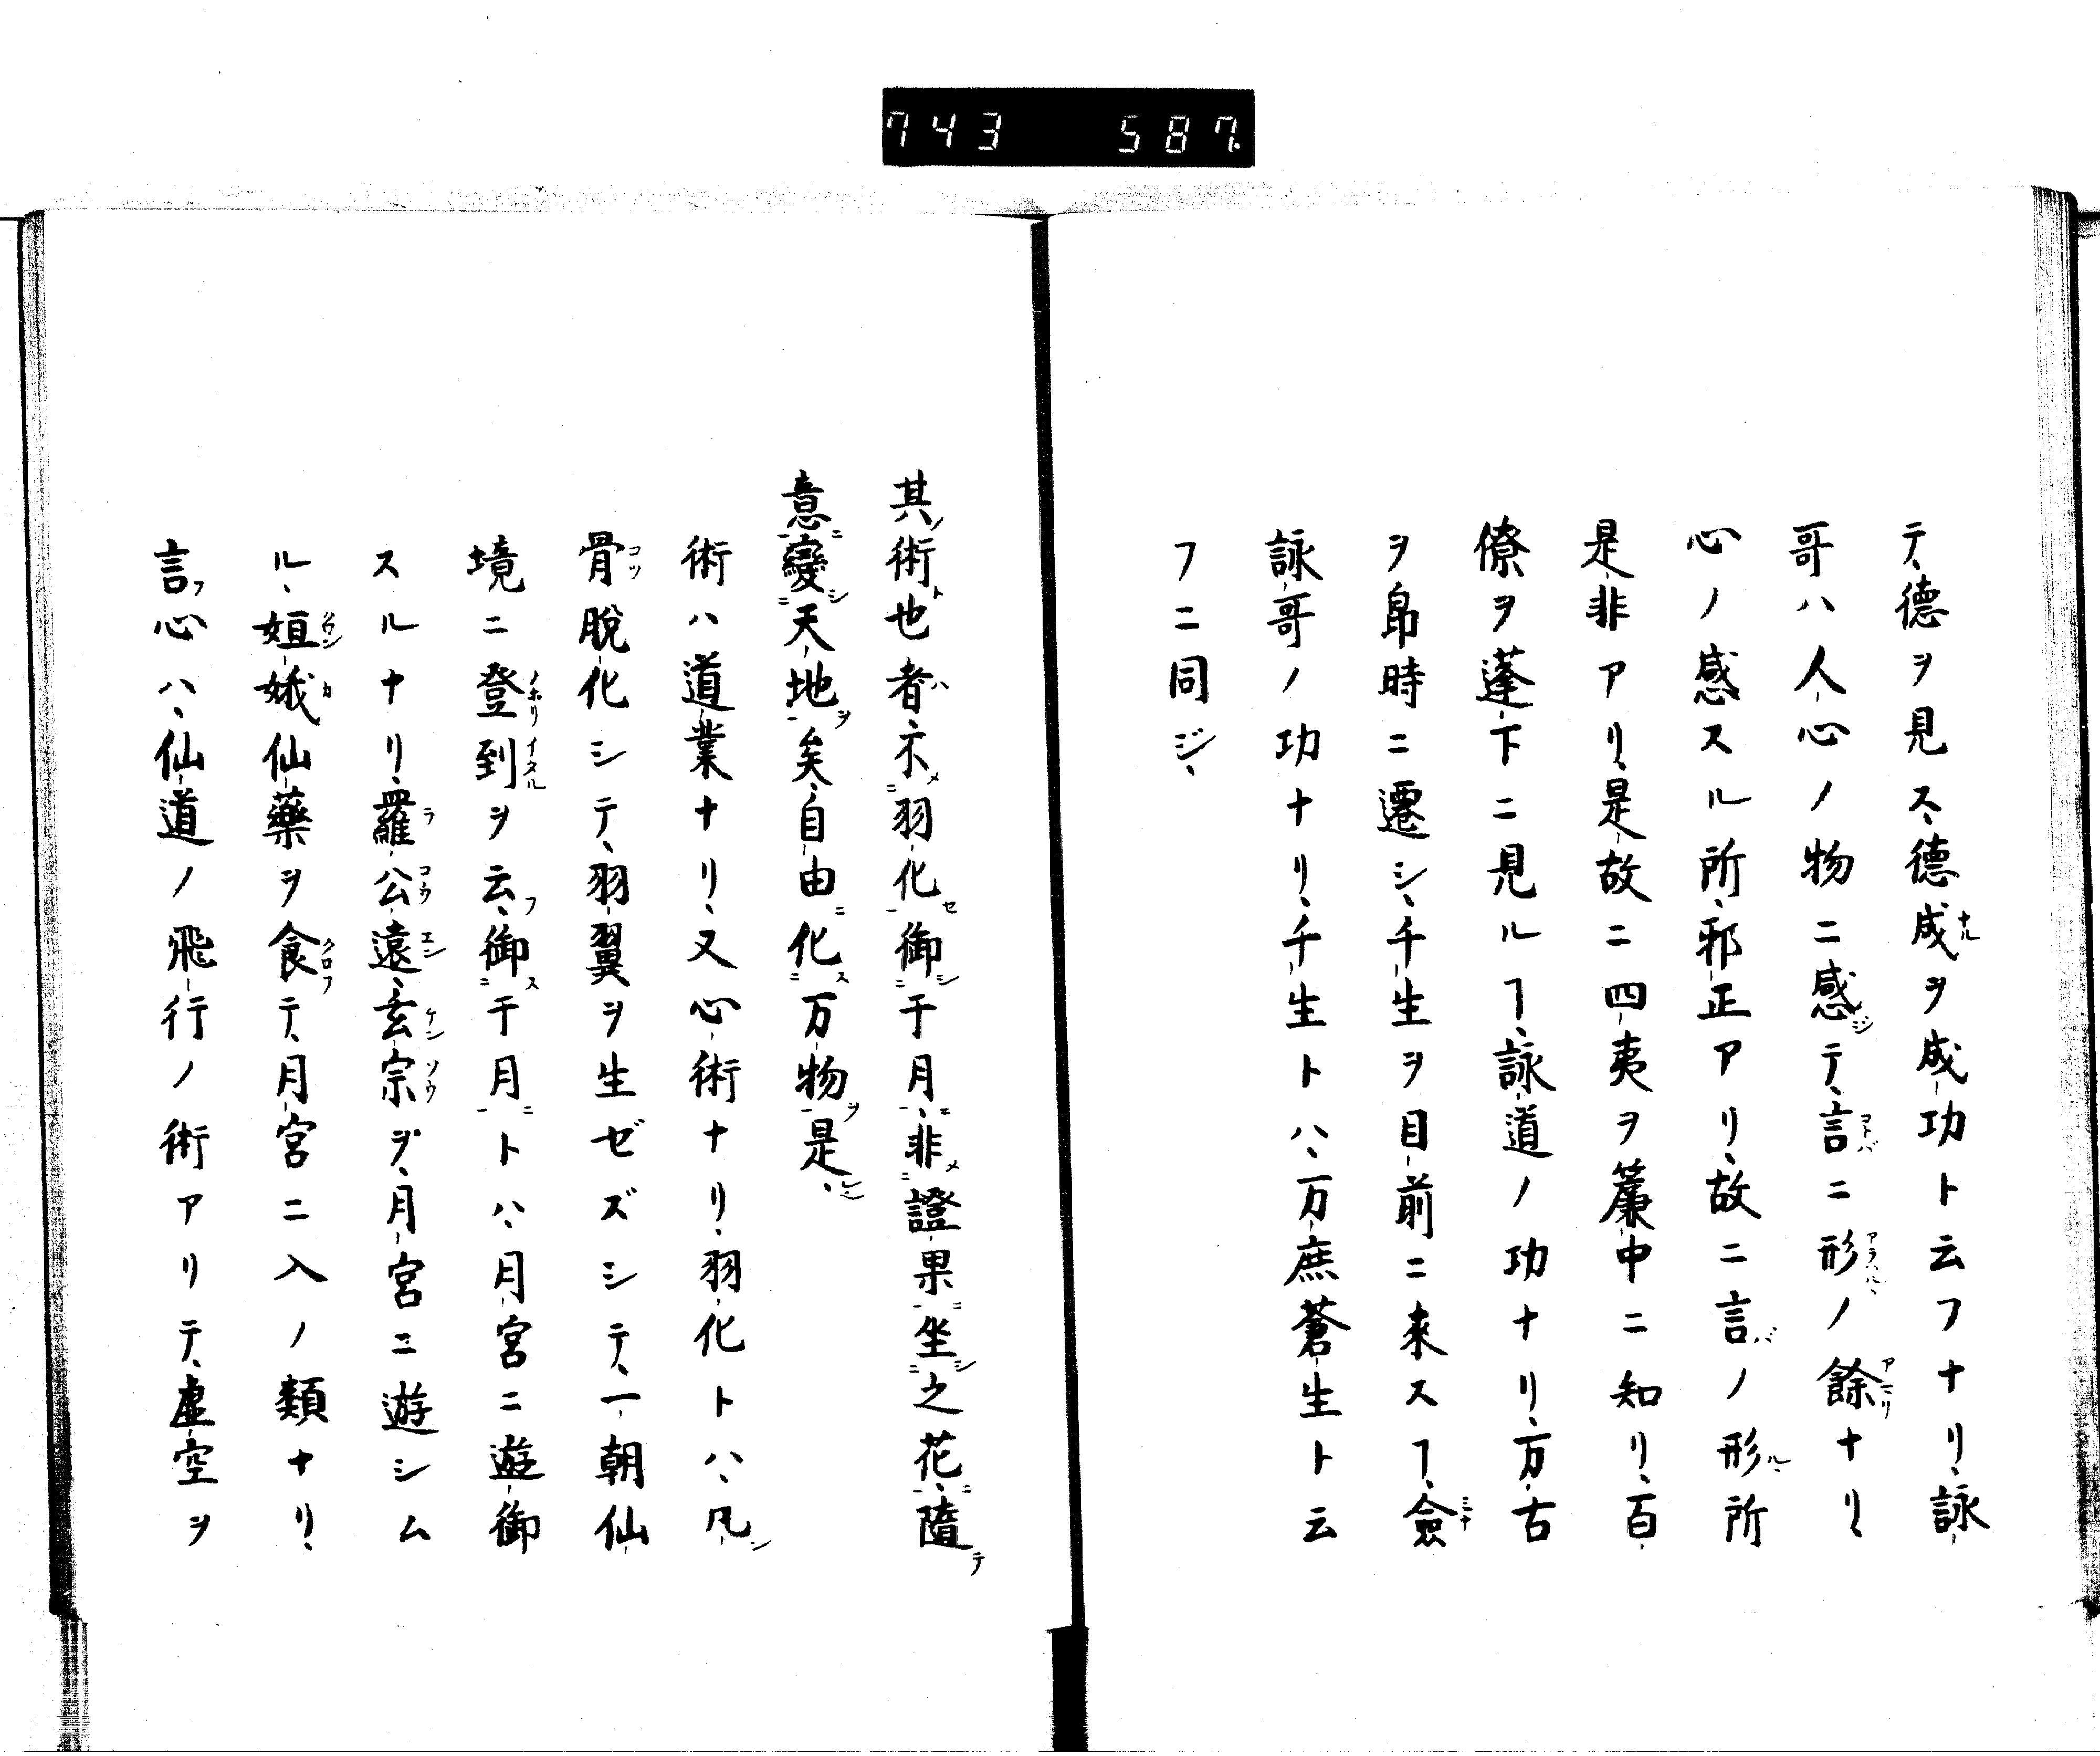 743 587
テ、徳ヲ見ス、徳成ヲ成功ト云フナリ、詠
哥ハ人心ノ物ニ感テ、言ニ形ノ餘ナリ、
心ノ感スル所、邪正アリ、故ニ言ノ形所
是非アリ、是故ニ四夷ヲ簾中ニ知リ、百
僚ヲ蓬下ニ見ルヿ、詠道ノ功ナリ、万古
ヲ帛時ニ遷シ、千生ヲ目前ニ来スヿ、僉
詠哥ノ功ナリ、千生トハ、万庶蒼生ト云
フニ同ジ、
其術也者、不羽化御于月、非證果坐之花、隨
意變天地矣、自由化万物是、
術ハ道業ナリ、又心術ナリ、羽化トハ、凡
骨脱化シテ、羽翼ヲ生ゼズシテ、一朝仙
境ニ登到ヲ云、御于月トハ、月宮ニ遊御
スルナリ、羅公遠、玄宗ヲ、月宮ニ遊シム
ル、姮娥仙藥ヲ食テ、月宮ニ入ノ類ナリ、
言心ハ、仙道ノ飛行ノ術アリテ、虚空ヲ